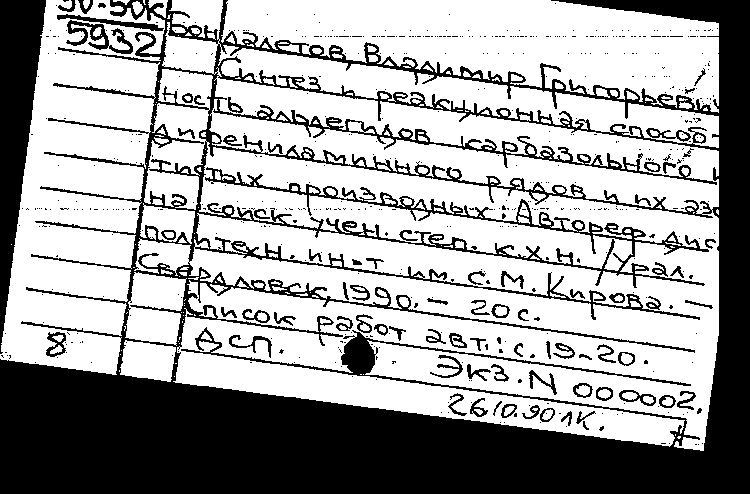 50-50к
5932
Бондалетов, Владимир Григорьевич
Синтез и реакционная способ-
ность альдегидов карбазольного и
дифениламинного рядов и их азо
тистых производных: Автореф. дис.
на соиск. учен. степ. к.х.н. / Урал.
политехн. ин-т им. С.М. Кирова. —
Свердловск, 1990. - 20 с.
Список работ авт.: с. 19-20.
8 ДСП. Экз. N 000002.
26.10.90 ЛК.